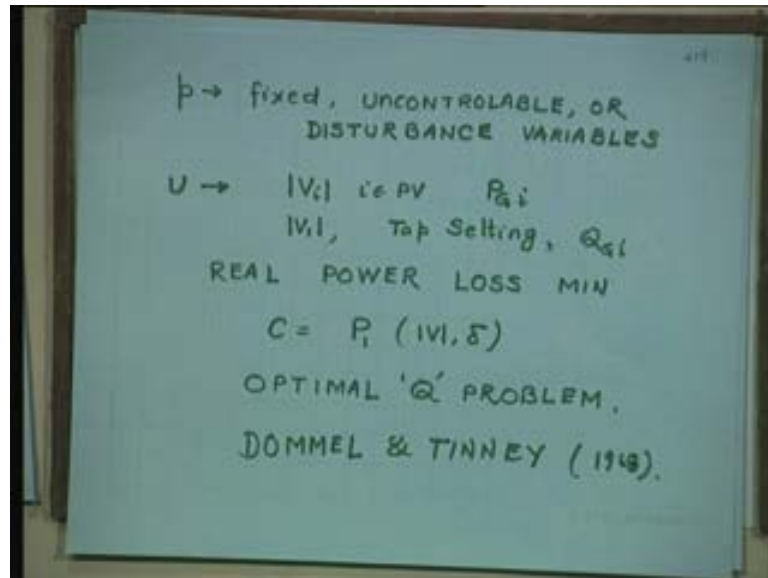 p → fixed, UNCONTROLABLE, OR
DISTURBANCE VARIABLES
U → |Vi| ie PV PGi
|V1|, Tap Setting, QGi
REAL POWER LOSS MIN
C = P1 (|V|, δ)
OPTIMAL 'Q' PROBLEM.
DOMMEL & TINNEY (1968).